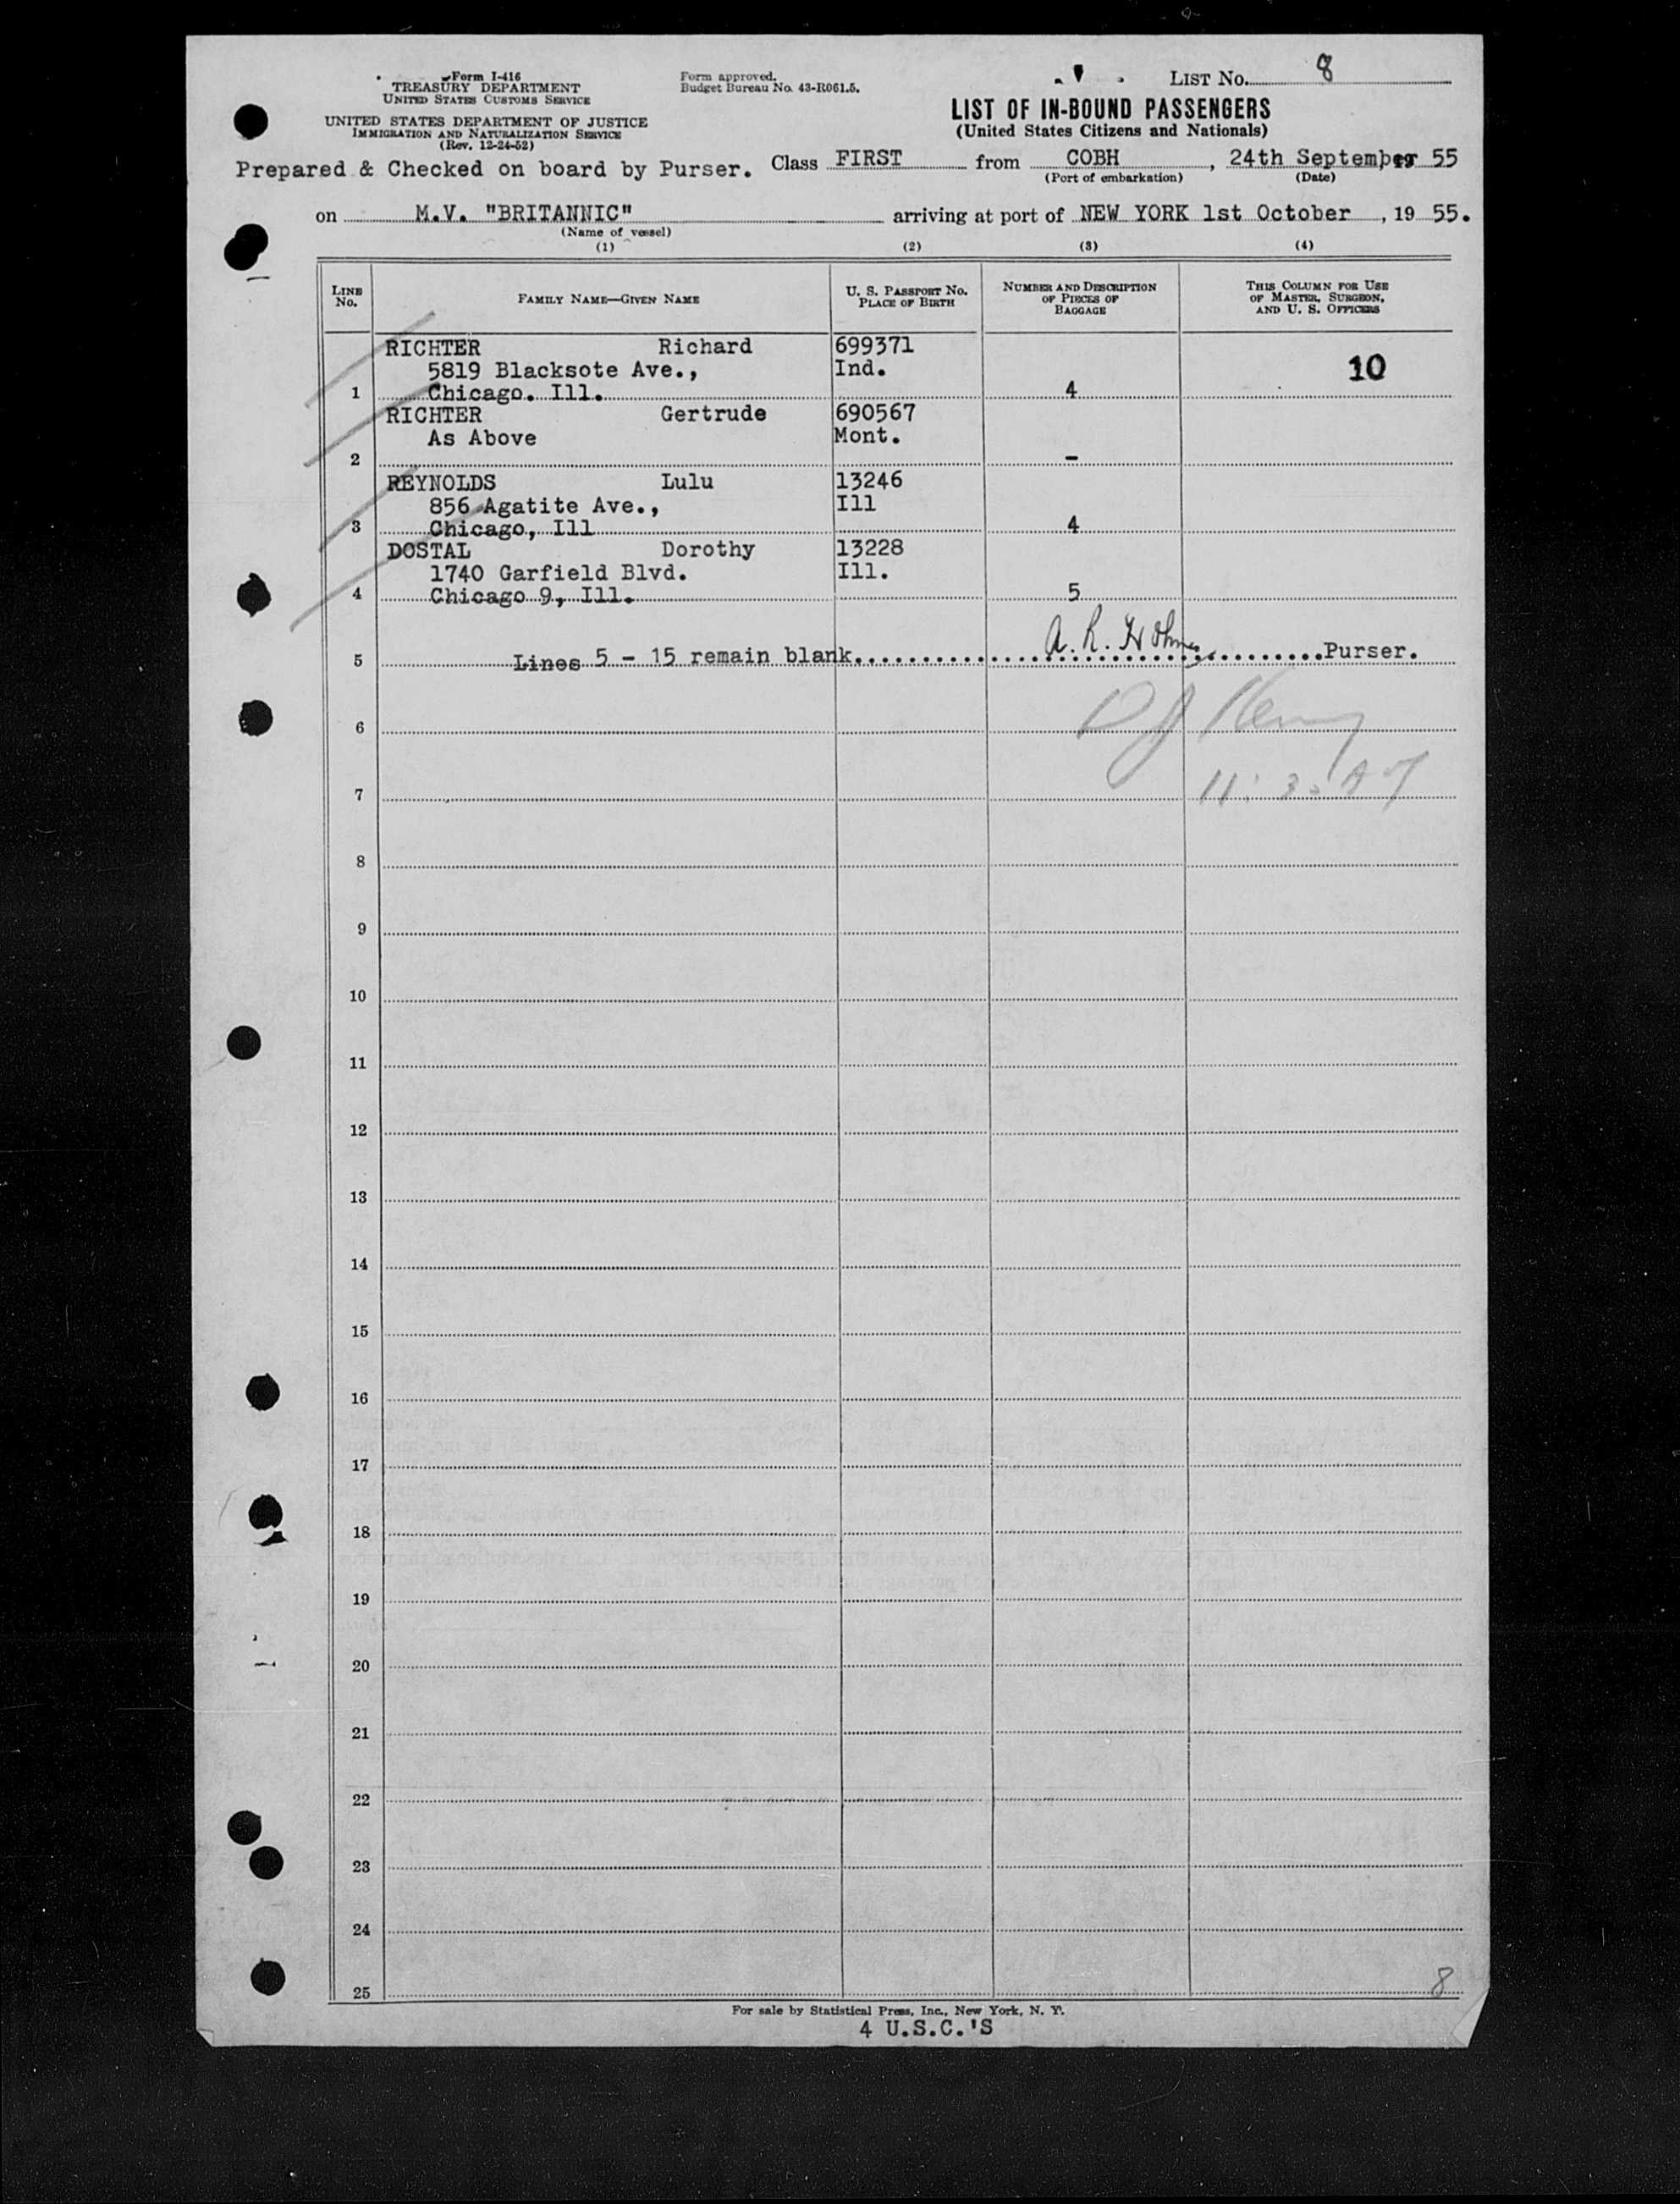 Form I-416
TREASURY DEPARTMENT
UNITED STATES CUSTOMS SERVICE
UNITED STATES DEPARTMENT OF JUSTICE
IMMIGRATION AND NATURALIZATION SERVICE
(Rev. 12-24-52)
Form approved.
Budget Bureau No. 43-R061.5.
LIST No. 8
LIST OF IN-BOUND PASSENGERS
(United States Citizens and Nationals)
Prepared & Checked on board by Purser. Class FIRST from COBH, 24th September, 55
(Port of embarkation) (Date)
on M.V. "BRITANNIC" arriving at port of NEW YORK 1st October, 19 55.
(Name of vessel)
(1) (2) (3) (4)
LINE No. FAMILY NAME—GIVEN NAME U. S. PASSPORT No. PLACE OF BIRTH NUMBER AND DESCRIPTION OF PIECES OF BAGGAGE THIS COLUMN FOR USE OF MASTER, SURGEON, AND U. S. OFFICERS
RICHTER Richard 699371
5819 Blacksote Ave., Ind. 10
1 Chicago. Ill. 4
RICHTER Gertrude 690567
As Above Mont.
2 –
REYNOLDS Lulu 13246
856 Agatite Ave., Ill
3 Chicago, Ill 4
DOSTAL Dorothy 13228
1740 Garfield Blvd. Ill.
4 Chicago 9, Ill. 5
5 Lines 5 - 15 remain blank. A. R. Purser.
6
7
8
9
10
11
12
13
14
15
16
17
18
19
20
21
22
23
24
25 8
For sale by Statistical Press, Inc., New York, N. Y.
4 U.S.C.'S